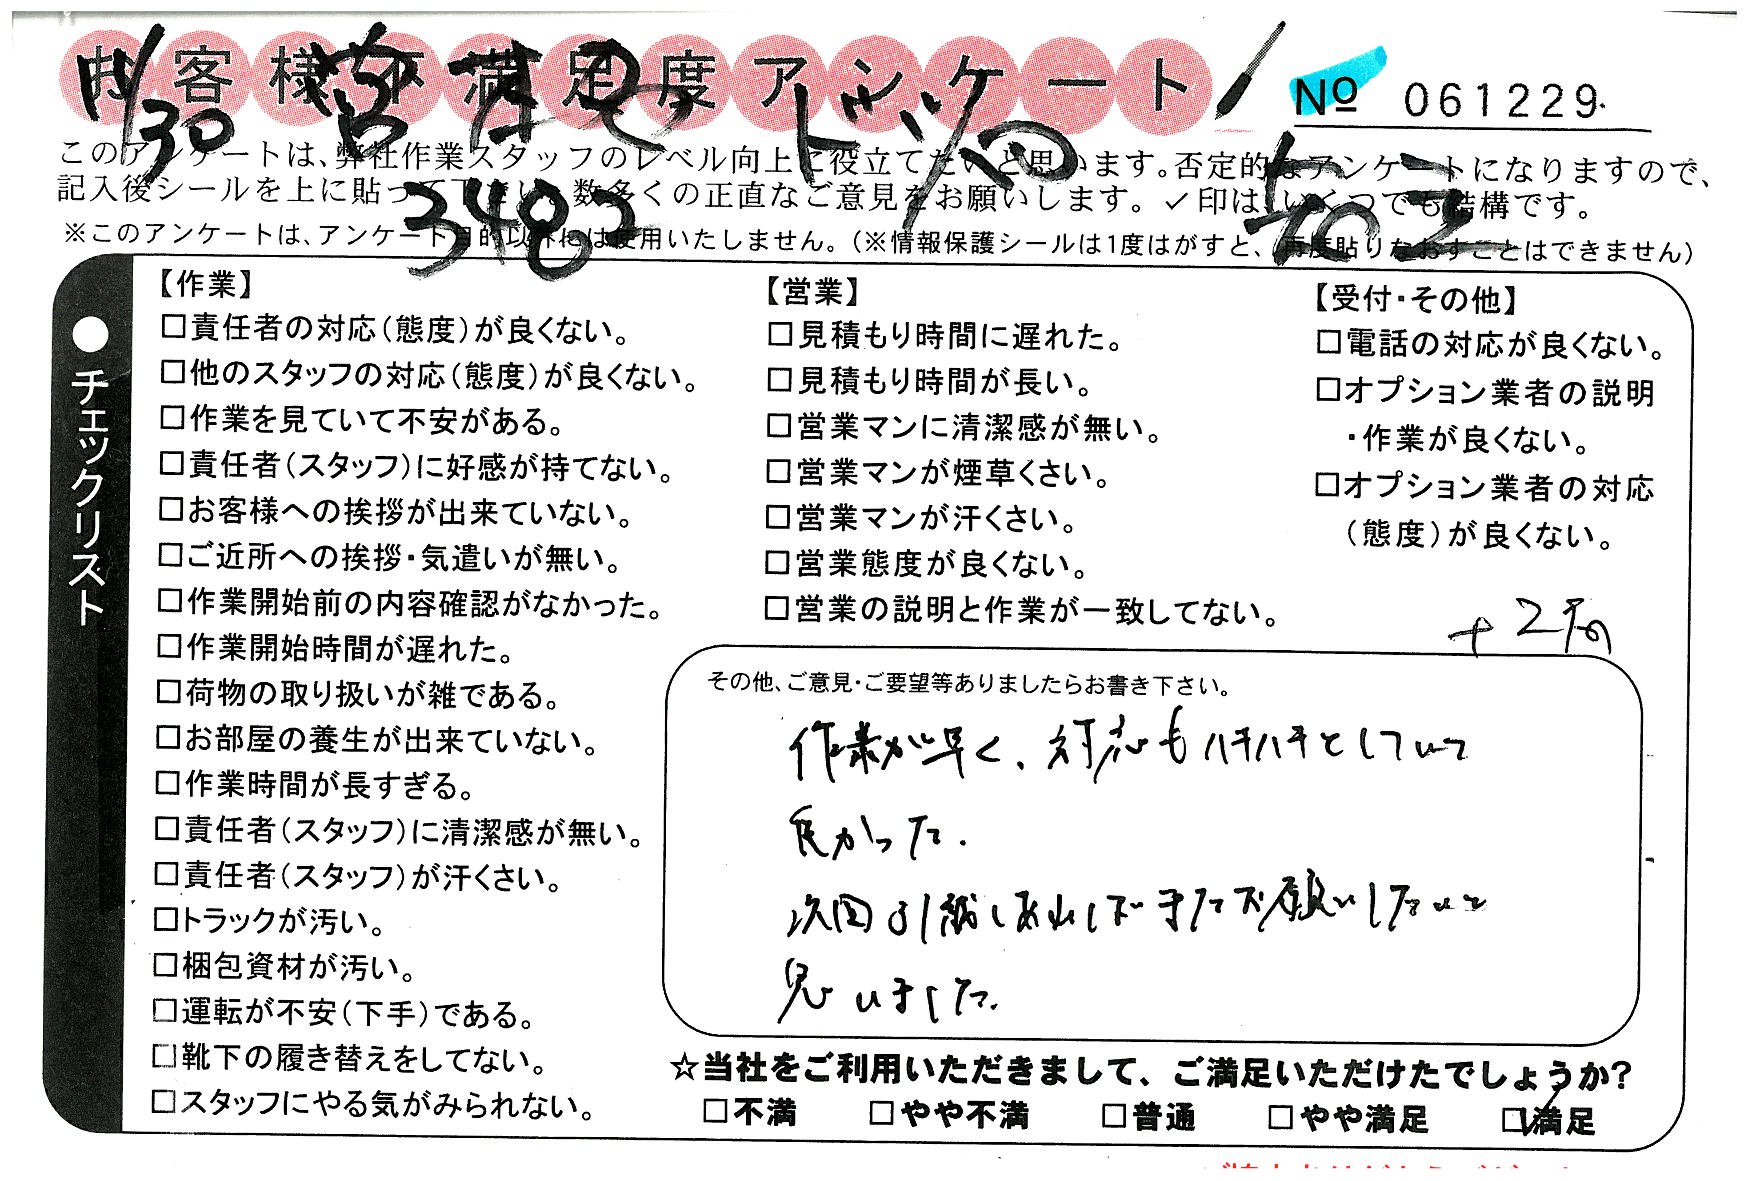 お客様不満足度アンケート
No 061229
11/30
3482
このアンケートは、弊社作業スタッフのレベル向上に役立てたいと思います。否定的なアンケートになりますので、
記入後シールを上に貼って下さい。数多くの正直なご意見をお願いします。✓印は、いくつでも結構です。
※このアンケートは、アンケート目的以外には使用いたしません。(※情報保護シールは1度はがすと、再度貼りなおすことはできません)
●チェックリスト
【作業】
□責任者の対応(態度)が良くない。
□他のスタッフの対応(態度)が良くない。
□作業を見ていて不安がある。
□責任者(スタッフ)に好感が持てない。
□お客様への挨拶が出来ていない。
□ご近所への挨拶・気遣いが無い。
□作業開始前の内容確認がなかった。
□作業開始時間が遅れた。
□荷物の取り扱いが雑である。
□お部屋の養生が出来ていない。
□作業時間が長すぎる。
□責任者(スタッフ)に清潔感が無い。
□責任者(スタッフ)が汗くさい。
□トラックが汚い。
□梱包資材が汚い。
□運転が不安(下手)である。
□靴下の履き替えをしてない。
□スタッフにやる気がみられない。
【営業】
□見積もり時間に遅れた。
□見積もり時間が長い。
□営業マンに清潔感が無い。
□営業マンが煙草くさい。
□営業マンが汗くさい。
□営業態度が良くない。
□営業の説明と作業が一致してない。
【受付・その他】
□電話の対応が良くない。
□オプション業者の説明
・作業が良くない。
□オプション業者の対応
(態度)が良くない。
その他、ご意見・ご要望等ありましたらお書き下さい。
作業が早く、対応もハキハキとしていて
良かった.
次回引越しあればまたお願いしたいと
思いました.
☆当社をご利用いただきまして、ご満足いただけたでしょうか?
□不満 □やや不満 □普通 □やや満足 ☑満足